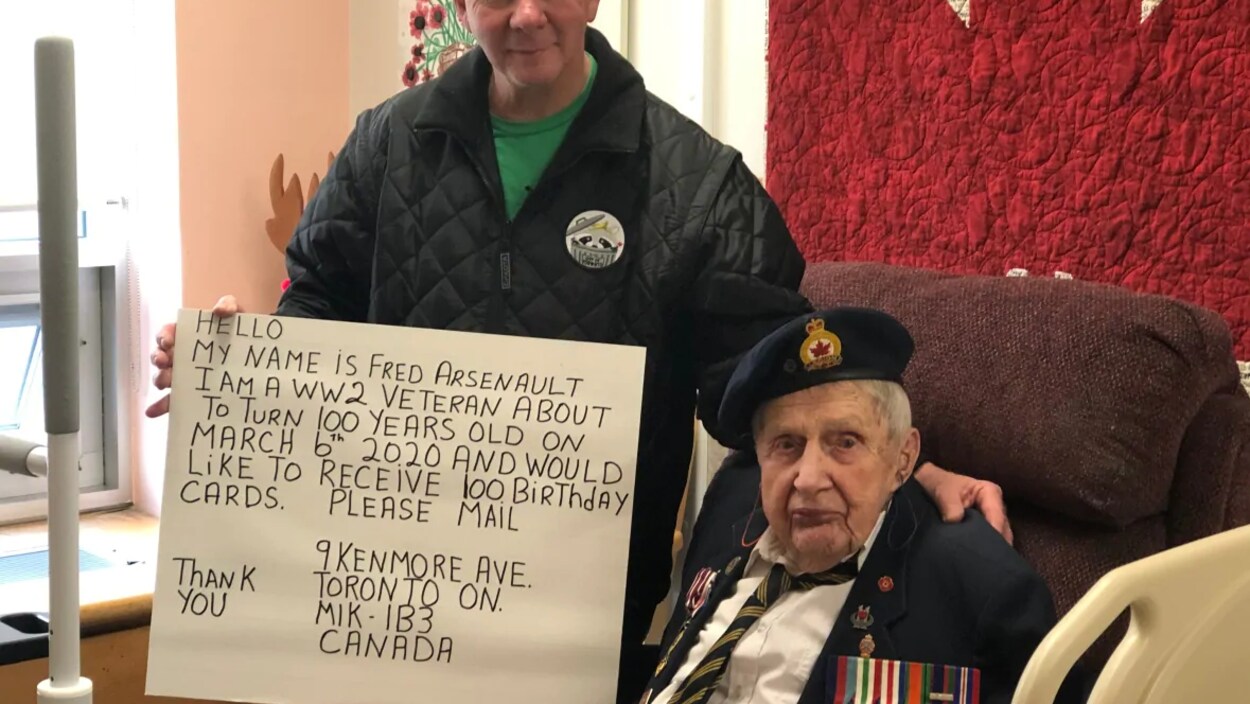 HELLO
MY NAME iS FRED ARSENAULT
I AM A WW2 VETERAN ABOUT
TO TURN 100 YEARS OLD ON
MARCH 6th 2020 AND WOULD
LiKE TO RECEIVE 100 BiRthDAY
CARDS. PLEASE MAIL
9 KENMORE AVE.
TORONTO ON.
M1K-1B3
CANADA
ThANK
YOU